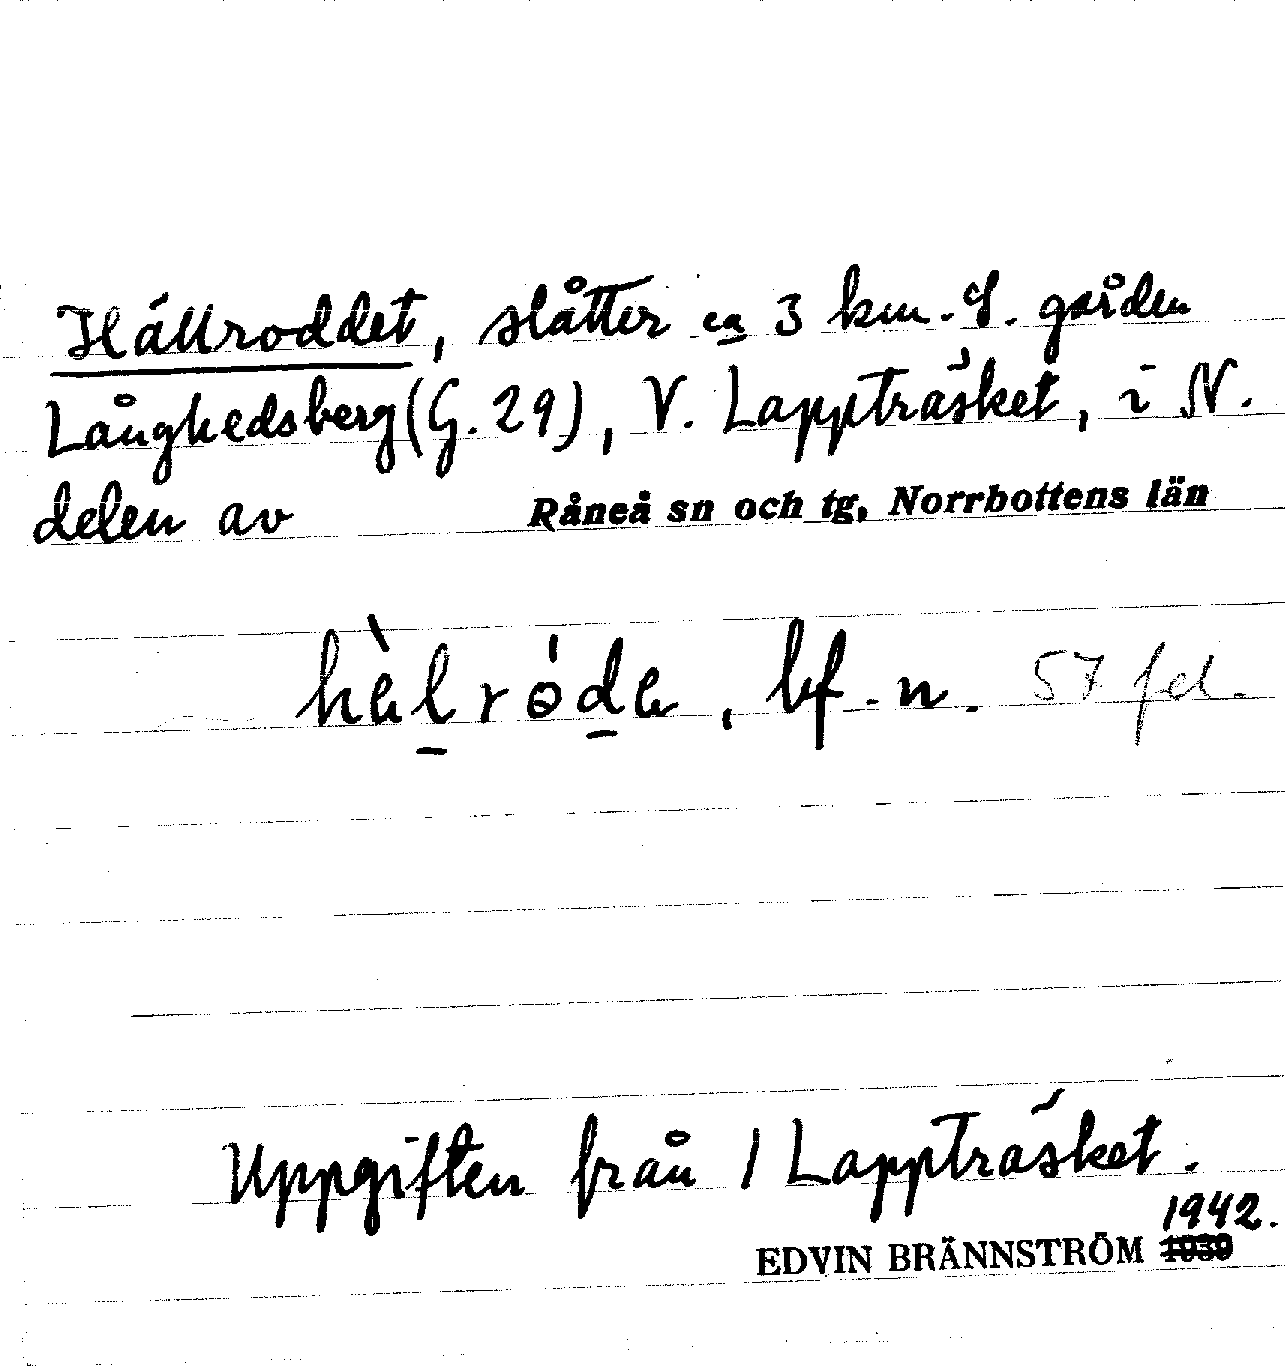 Hällroddet, slåtter ca 3 km. S. gården
Långhedsberg (G. 29), V. Lappträsket, i N.
delen av Råneå sn och tg, Norrbottens län
bf. n. 57 fel.
Uppgiften från 1 Lappträsket.
1942.
EDVIN BRÄNNSTRÖM 1939